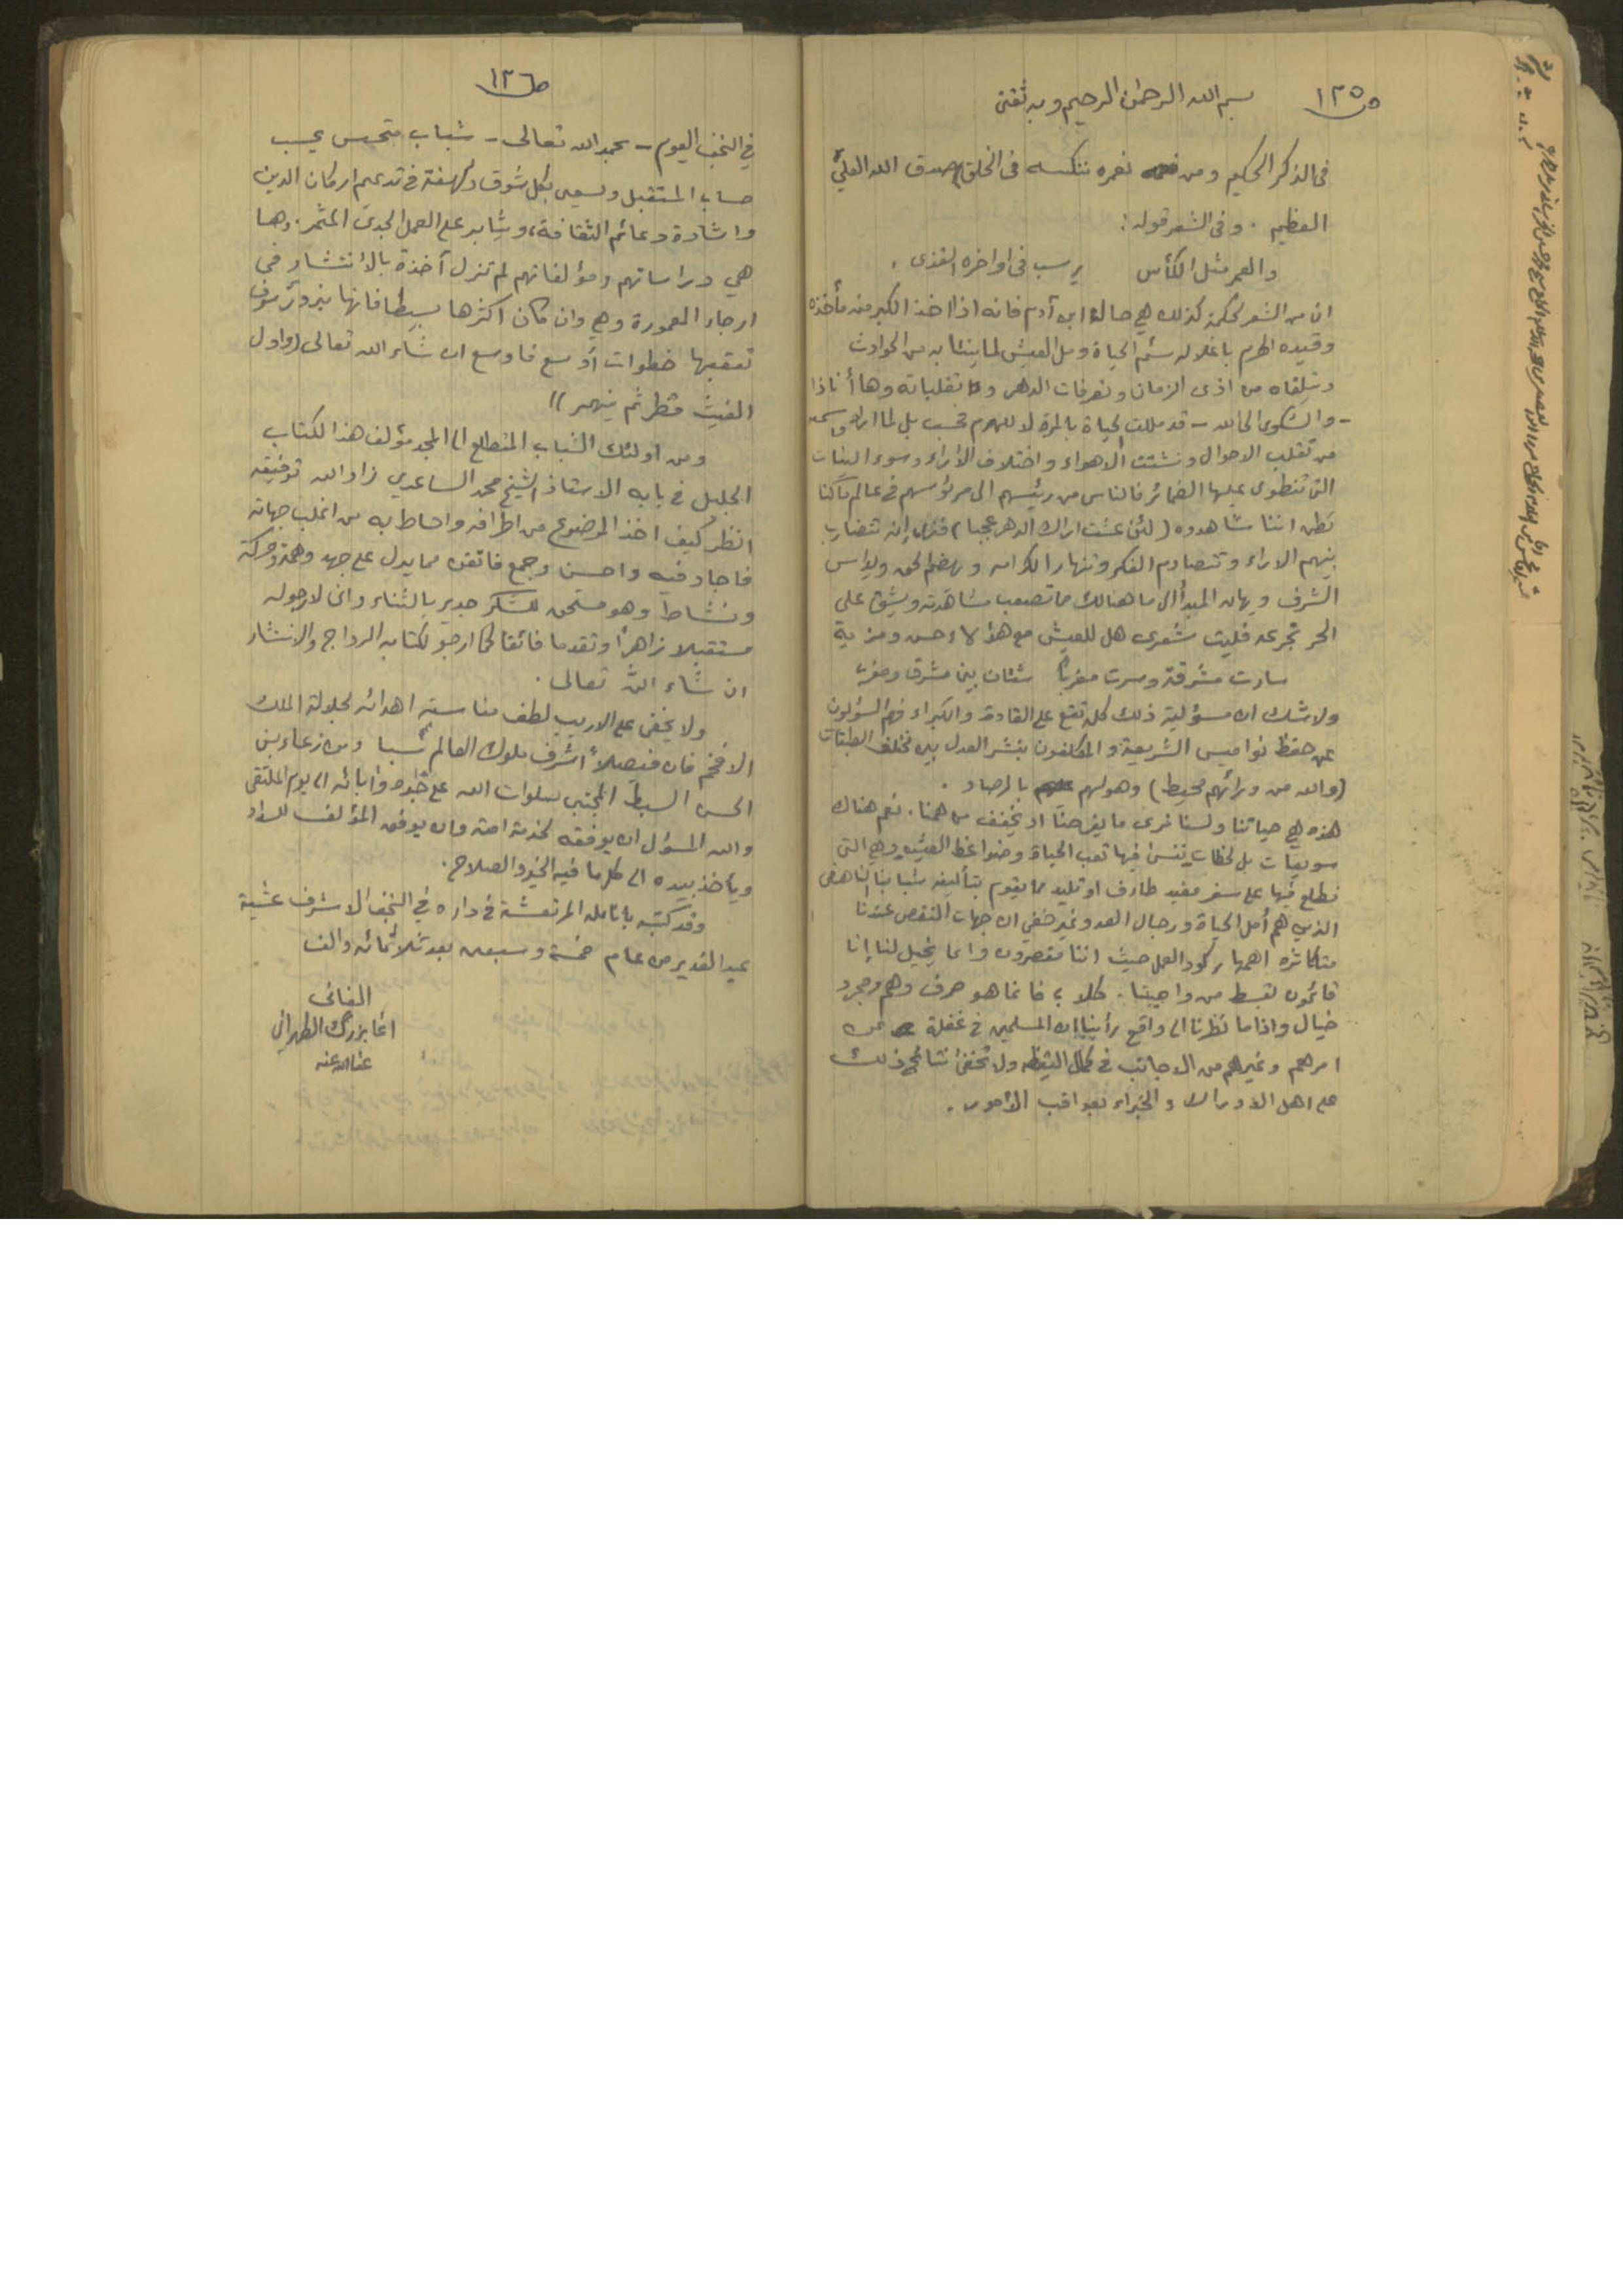 ص ١٢٥
بسم الله الرحمن الرحيم وبه ثقتي
في الذكر الحكيم ومن نعمره ننكسه في الخلق) صدق الله العلي
العظيم . وفي الشعر قوله :
والعمر مثل الكأس يرسب في اواخره القذى .
ان من الشعر لحكمة كذلك هي حالة ابن آدم فانه اذا اخذ الكبر منه مأخذه
وقيده الهرم باغلاله سئم الحياة ومل العيش لما ينتابه من الحوادث
ويلقاه من اذى الزمان وتصرفات الدهر و تقلباته وها أناذا
- والشكوى الى الله - قد مللت الحياة بالمرة لا للهرم فحسب بل لما اراه واسمعه
من تقلب الاحوال وتشتت الاهواء واختلاف الآراء وسوء النيات
التي تنطوي عليها الضمائر فالناس من رئيسهم الى مرئوسهم في عالم ما كنا
نظن اننا نشاهده (لئن عشت اراك الدهر عجبا) فترى انه تتضارب
بينهم الآراء وتتصادم الفكر وتنهار الكرامه ويهضم الحق ويداس
الشرف ويهان المبدأ الى ما هنالك مما تصعب مشاهدته ويشق على
الحر تجرعه فليت شعري هل للعيش مع هؤلاء حسن ومزية
سارت مشرقة وسرت مغربًا شتان بين مشرق ومغرب
ولا شك ان مسؤلية ذلك كله تقع على القادة والكبراء فهم المسؤلون
عن حفظ نواميس الشريعة والمكلفون بنشر العدل بين مختلف الطبقات
(والله من ورائهم محيط) وهو لهم بالمرصاد .
هذه هي حياتنا ولسنا نرى ما يفرحنا او يخفف من همنا. نعم هناك
سويعات بل لحظات ننسى فيها تعب الحياة وضواغط العيش وهي التي
نطلع فيها على سفر مفيد طارف او تليد مما يقوم بتأليفه شبابنا الناهض
الذين هم أمل الحياة ورجال الغد وغير خفي ان جهات النقص عندنا
متكاثرة اهمها ركود العمل حيث اننا مقصرون وانما يخيل لنا إنا
قائمون بقسط من واجبنا. كلا ، فانما هو صرف وهم ومجرد
خيال واذا ما نظرنا الى واقع رأينا ان المسلمين في غفلة عن
امرهم وغيرهم من الاجانب في كمال اليقظه ولا تخفى نتائج ذلك
على اهل الادراك والخبراء بعواقب الأمور .
ص ١٢٦
في النجف اليوم - بحمد الله تعالى - شباب متحمس يحسب
حساب المستقبل ويسعى بكل شوق ولهفة في تدعيم اركان الدين
واشادة دعائم الثقافة، ويثابر على العمل الجدي المثمر. وها
هي دراساتهم ومؤلفاتهم لم تزل آخذة بالانتشار في
ارجاء المعمورة وهي وان كان اكثرها بسيطا فانها بذور سوف
تعقبها خطوات أوسع فاوسع ان شاء الله تعالى (واول
الغيث قطر ثم ينهمر))
ومن اولئك الشباب المتطلع الى المجد مؤلف هذا الكتاب
الجليل في بابه الاستاذ الشيخ محمد الساعدي زاد الله توفيقه
انظر كيف اخذ الموضوع من اطرافه واحاط به من اغلب جهاته
فاجاد فيه واحسن وجمع فاتقن مما يدل على جهد وهمة وحركة
ونشاط وهو مستحق للشكر جدير بالثناء واني لارجو له
مستقبلا زاهرًا وتقدما فائقا كما ارجو لكتابه الرواج والانتشار
ان شاء الله تعالى .
ولا يخفى على الاريب لطف مناسبة اهدائه لجلالة الملك
الافخم فان فيصلاً أشرف ملوك العالم نسبا ومن زعماء بني
الحسن السبط المجتبى صلوات الله على جده وابائه الى يوم الملتقى
والله المسؤل ان يوفقه لخدمة امته وان يوفق المؤلف للسداد
ويأخذ بيده الى كل ما فيه الخير والصلاح .
وقد كتبه بانامله المرتعشة في داره في النجف الاشرف عشية
عيد الغدير من عام خمسة وسبعين بعد ثلاثمائه والف
الفاني
اغا بزرگ الطهراني
عفا الله عنه